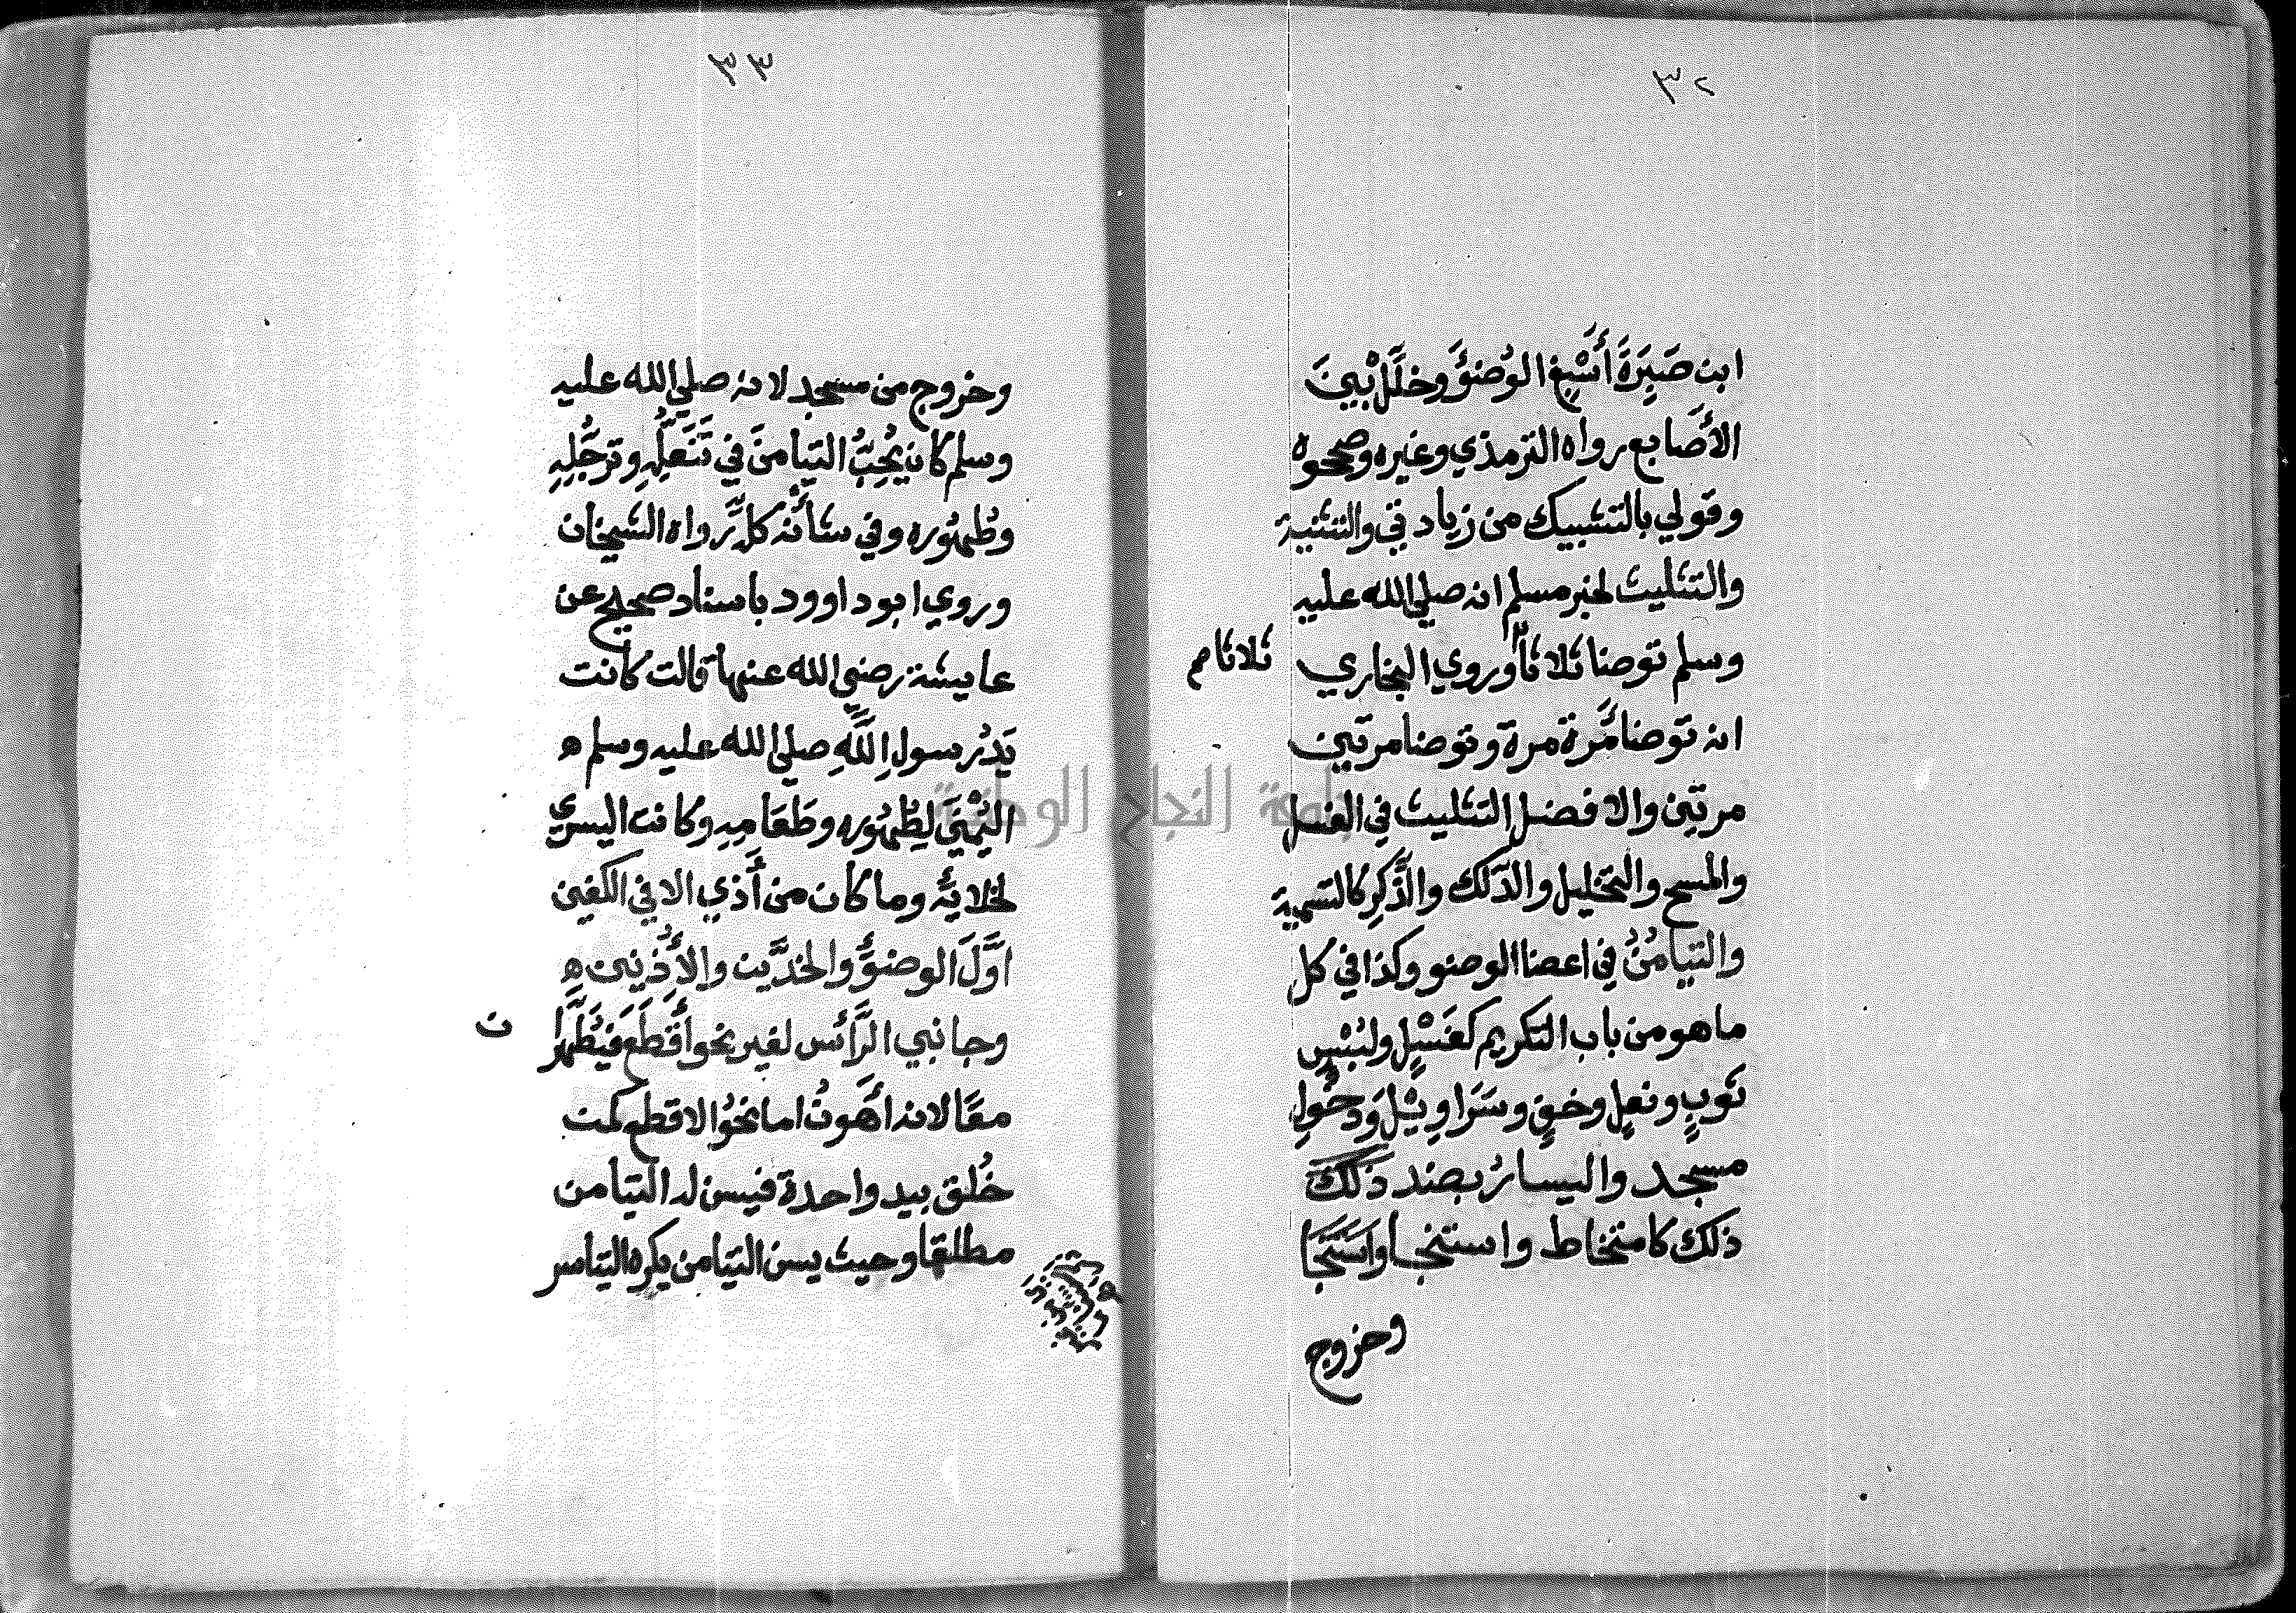 ٣٢
ابن صَبِرَةَ أَسْبِغِ الوُضؤَ وخلِّل بْينَ
الأَصابع رواه الترمذي وغيره وصححوه
وقولي بالتشبيك من زيادتي والتثنية
والتثليث لخبر مسلم انه صلي الله عليه
وسلم توضا ثلاثا وروي البخاري
ثلاثا م
انه توضا مَّرة مرة وتوضا مرتين
مرتين والافضل التثليث في الغسل
والمسح والتخليل والدّلك والذِّكرِ كالتسمية
والتيامُنُ في اعضا الوضو وكذا في كل
ما هو من باب التكريم كغَسْلٍ ولُبْسِ
ثوبٍ ونعلٍ وخفٍ وسَرَاوِيْل وَدخُولِ
مسجد واليسارُ بضد ذلك
ذلك كامتخاط واستنجا واستنجا
وخروج
٣٣
وخروج من مسجد لانه صلي الله عليه
وسلم كان يُحِبُّ التيامنَ في تَنَعُّلِهِ وترجُّلِهِ
وطُهُوره وفي شأنه كلِّه رواه الشيخان
وروي ابو داوود باسناد صحيح عن
عايشة رضي الله عنها قالت كانت
يَدُ رسول اللَّهِ صلي الله عليه وسلم ه
اليُمْنَي لِطُهُوره وطَعَامِهِ وكانت اليسري
لخلائه وما كان من أَذي الا في الكفين
اوَّلَ الوضؤَ والخدَّين والأُذُنين ه
وجانبي الرَّأس لغير نحو أَقطَعَ فيُطَهَّرا
ن
معًا لانه أَهونُ اما نحوُ الاقطع كمن
خُلق بيد واحدة فيسن له التيامن
مطلقا وحيث يسن التيامن يكره التياسر
جامعة النجاح الوطنية